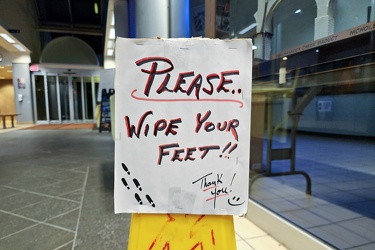 PLEASE..
WIPE YOUR
FEET!!
Thank
you!